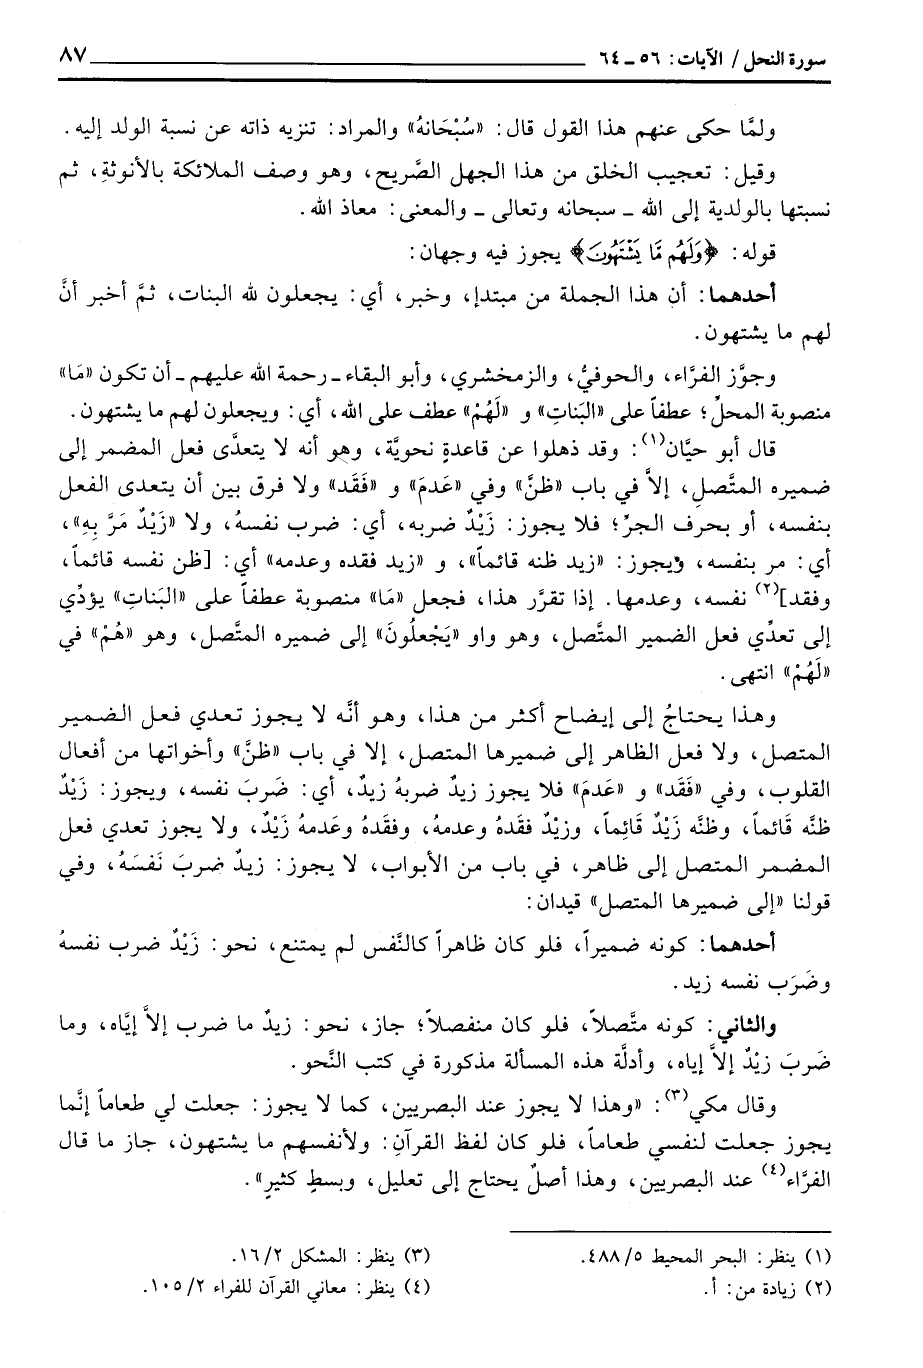 سورة النحل/ الآيات: ٥٦ ـ ٦٤ ٨٧
ولمَّا حكى عنهم هذا القول قال: «سُبْحَانهُ» والمراد: تنزيه ذاته عن نسبة الولد إليه.
وقيل: تعجيب الخلق من هذا الجهل الصَّريح، وهو وصف الملائكة بالأنوثةِ، ثم
نسبتها بالولدية إلى الله ـ سبحانه وتعالى ـ والمعنى: معاذ الله.
قوله: ﴿وَلَهُم مَّا يَشْتَهُونَ﴾ يجوز فيه وجهان:
أحدهما: أن هذا الجملة من مبتدإ، وخبر، أي: يجعلون لله البنات، ثمَّ أخبر أنَّ
لهم ما يشتهون.
وجوَّز الفرَّاء، والحوفيُّ، والزمخشري، وأبو البقاء ـ رحمة الله عليهم ـ أن تكون «مَا»
منصوبة المحلِّ؛ عطفاً على «البَناتِ» و «لَهُمْ» عطف على الله، أي: ويجعلون لهم ما يشتهون.
قال أبو حيَّان(١): وقد ذهلوا عن قاعدةٍ نحويَّة، وهو أنه لا يتعدَّى فعل المضمر إلى
ضميره المتَّصلِ، إلاَّ في باب «ظنَّ» وفي «عَدمَ» و «فَقَد» ولا فرق بين أن يتعدى الفعل
بنفسه، أو بحرف الجرِّ؛ فلا يجوز: زَيْدٌ ضربه، أي: ضرب نفسهُ، ولا «زَيْدٌ مَرَّ بِهِ»،
أي: مر بنفسه، ويجوز: «زيد ظنه قائماً»، و «زيد فقده وعدمه» أي: [ظن نفسه قائماً،
وفقد](٢) نفسه، وعدمها. إذا تقرَّر هذا، فجعل «مَا» منصوبة عطفاً على «البَناتِ» يؤدِّي
إلى تعدِّي فعل الضمير المتَّصل، وهو واو «يَجْعلُونَ» إلى ضميره المتَّصل، وهو «هُمْ» في
«لَهُمْ» انتهى.
وهذا يحتاجُ إلى إيضاح أكثر من هذا، وهو أنَّه لا يجوز تعدي فعل الضمير
المتصل، ولا فعل الظاهر إلى ضميرها المتصل، إلا في باب «ظنَّ» وأخواتها من أفعال
القلوب، وفي «فَقَد» و «عَدمَ» فلا يجوز زيدٌ ضربهُ زيدٌ، أي: ضَربَ نفسه، ويجوز: زَيْدٌ
ظنَّه قَائماً، وظنَّه زَيْدٌ قَائِماً، وزيْدٌ فقَدهُ وعدمهُ، وفقَدهُ وعَدمهُ زَيْدٌ، ولا يجوز تعدي فعل
المضمر المتصل إلى ظاهر، في باب من الأبواب، لا يجوز: زيدٌ ضربَ نَفسَهُ، وفي
قولنا «إلى ضميرها المتصل» قيدان:
أحدهما: كونه ضميراً، فلو كان ظاهراً كالنَّفس لم يمتنع، نحو: زَيْدٌ ضرب نفسهُ
وضَرَب نفسه زيد.
والثاني: كونه متَّصلاً، فلو كان منفصلاً؛ جاز، نحو: زيدٌ ما ضرب إلاَّ إيَّاه، وما
ضَربَ زيْدٌ إلاَّ إياه، وأدلَّة هذه المسألة مذكورة في كتب النَّحو.
وقال مكي(٣): «وهذا لا يجوز عند البصريين، كما لا يجوز: جعلت لي طعاماً إنَّما
يجوز جعلت لنفسي طعاماً، فلو كان لفظ القرآنِ: ولأنفسهم ما يشتهون، جاز ما قال
الفرَّاء(٤) عند البصريين، وهذا أصلٌ يحتاج إلى تعليل، وبسطٍ كثيرٍ».
(١) ينظر: البحر المحيط ٥/ ٤٨٨.
(٢) زيادة من: أ.
(٣) ينظر: المشكل ٢/ ١٦.
(٤) ينظر: معاني القرآن للفراء ٢/ ١٠٥.